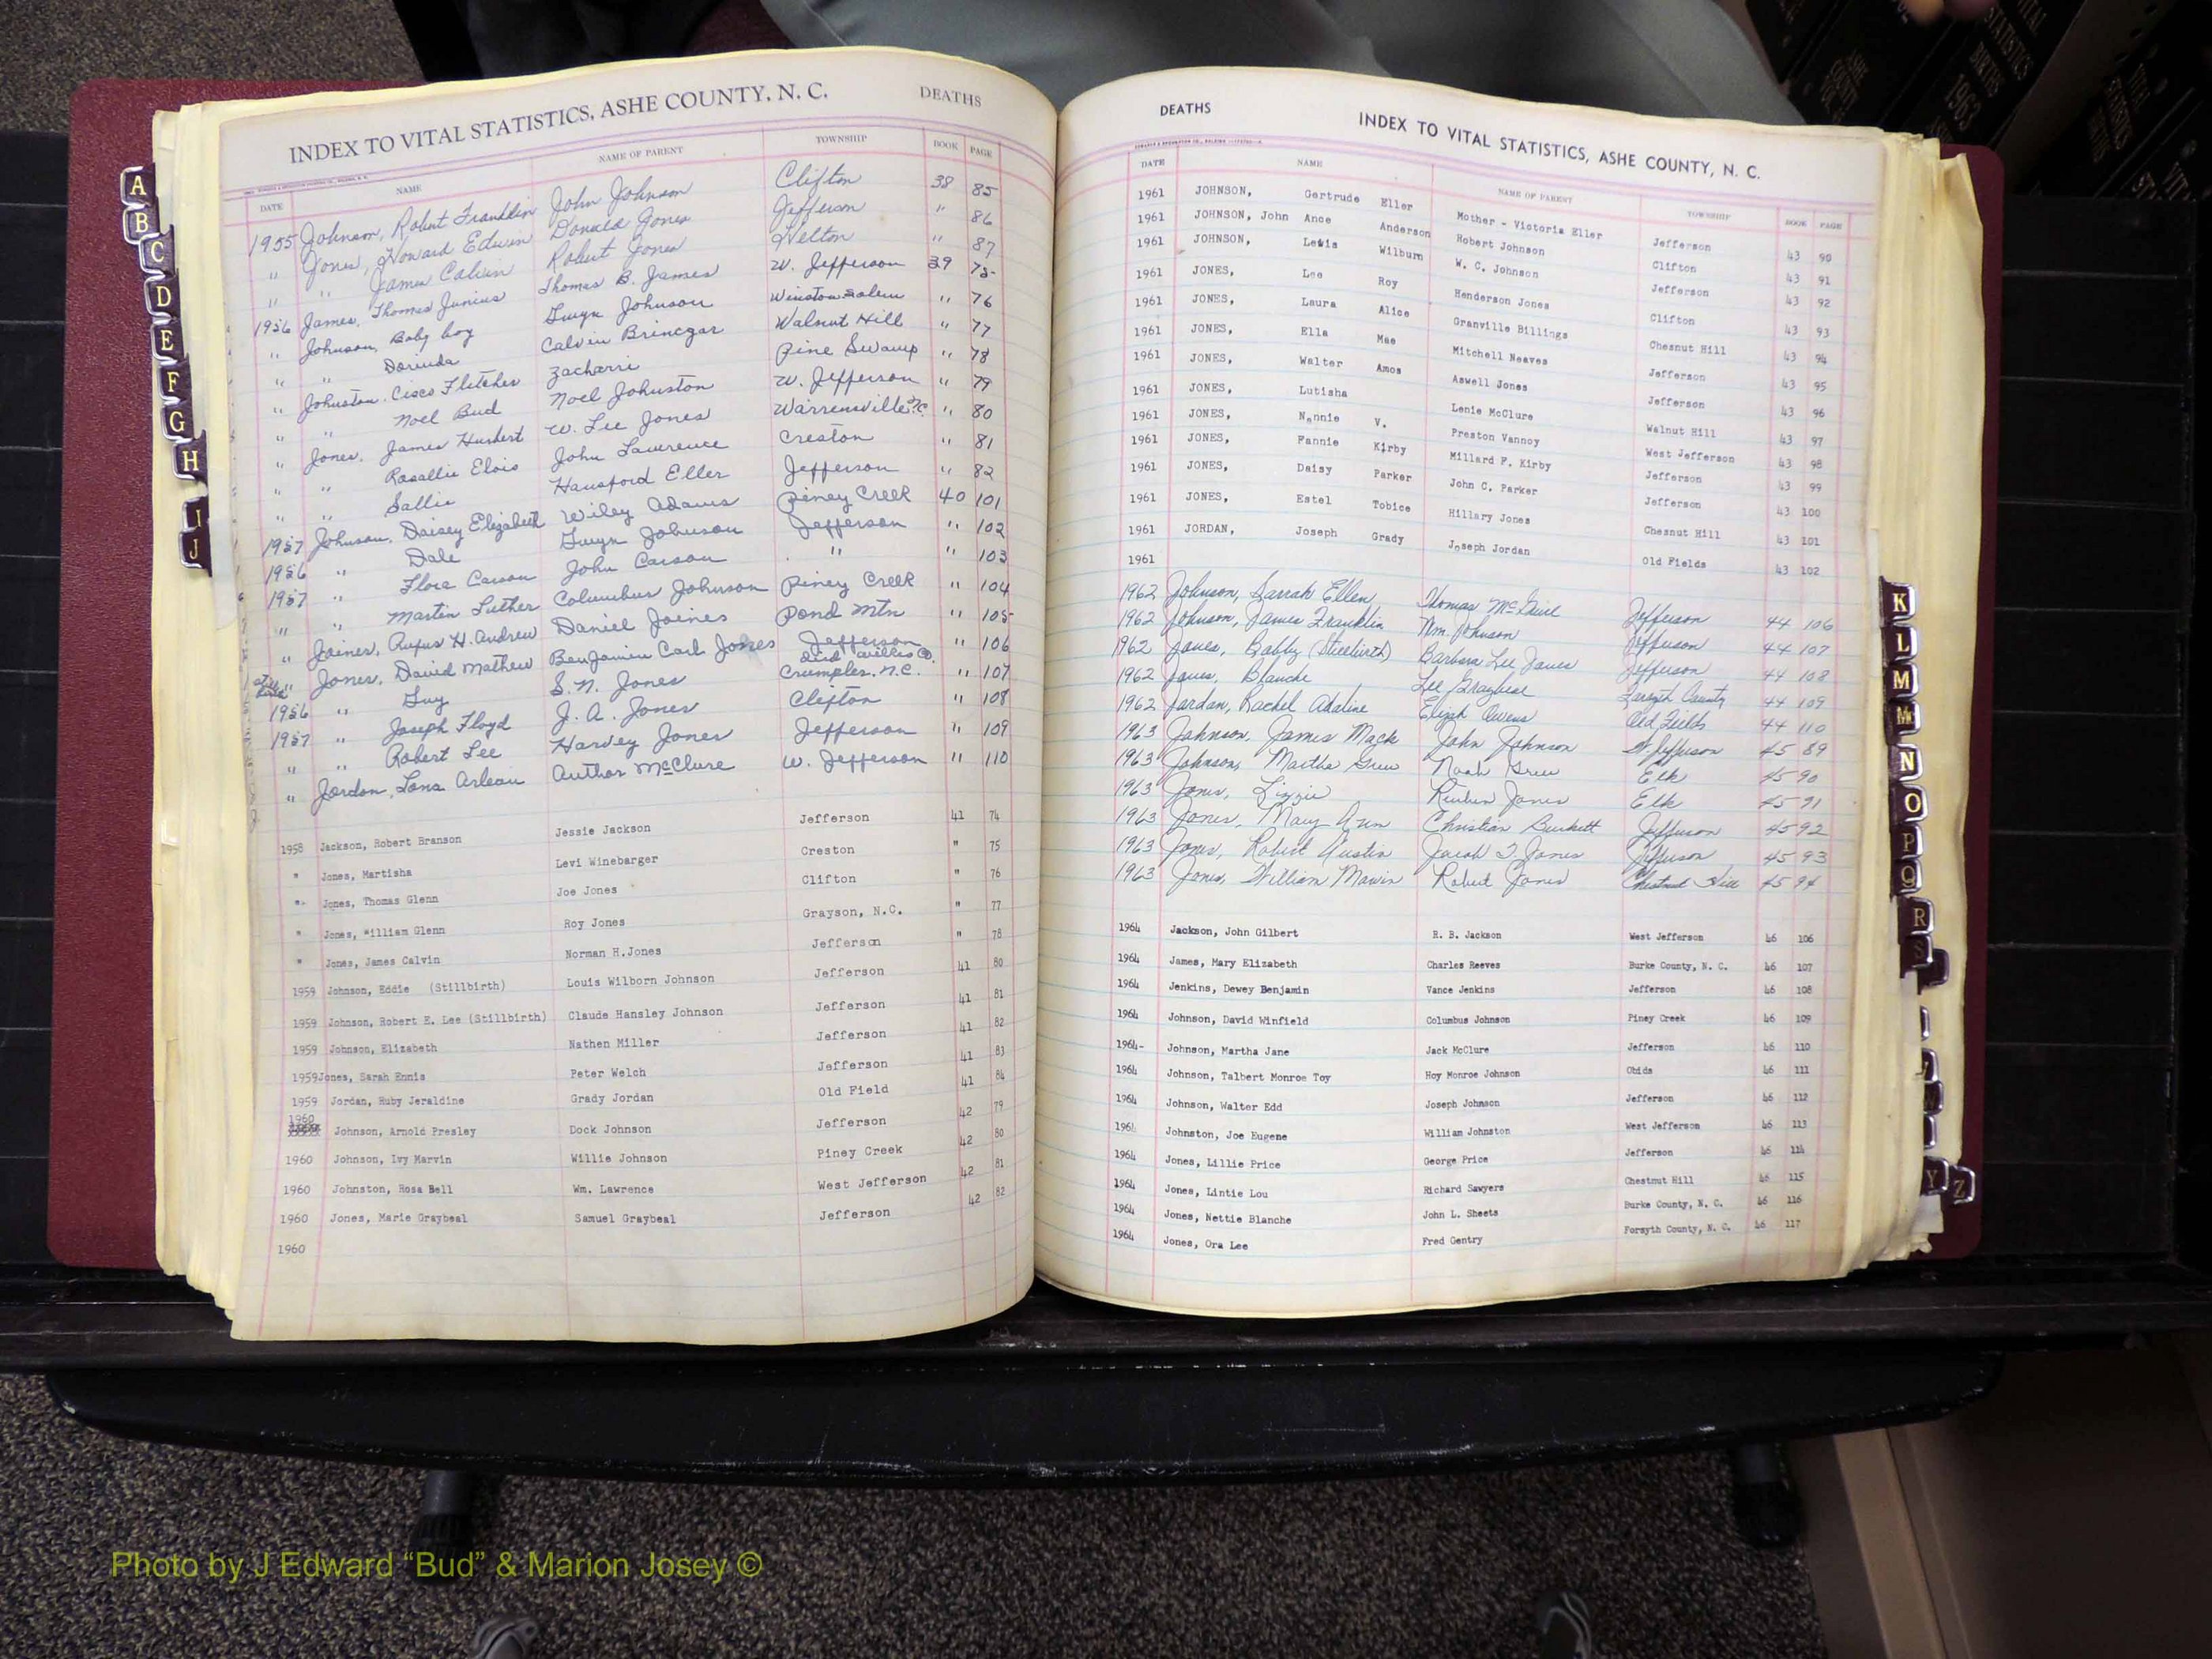 INDEX TO VITAL STATISTICS, ASHE COUNTY, N. C. DEATHS
DATE NAME NAME OF PARENT TOWNSHIP BOOK PAGE
1955 Johnson, Robert Franklin John Johnson Clifton 38 85
" Jones, Howard Edwin Donald Jones Jefferson " 86
" " James Calvin Robert Jones Helton " 87
1956 James, Thomas Junius Thomas B. James W. Jefferson 39 75
" Johnson, Baby boy Gwyn Johnson Winston Salem " 76
" " Dorinda Calvin Brinegar Walnut Hill " 77
" Johnston, Cisco Fletcher Zacharri Pine Swamp " 78
" " Noel Bud Noel Johnston W. Jefferson " 79
" Jones, James Hurbert W. Lee Jones Warrensville N.C. " 80
" " Rosallie Elois John Lawrence Creston " 81
" " Sallie Hansford Eller Jefferson " 82
1957 Johnson, Daisey Elizabeth Wiley Adams Piney Creek 40 101
1956 " Dale Gwyn Johnson Jefferson " 102
1957 " Flora Carson John Carson " " 103
" " Martin Luther Columbus Johnson Piney Creek " 104
" Joines, Rufus H. Andrew Daniel Joines Pond Mtn " 105
" Jones, David Mathew Benjamin Carl Jones Jefferson " 106
1956 " Guy S. N. Jones died Wilkes Co. Crumpler, N.C. " 107
1957 " Joseph Floyd J. A. Jones Clifton " 108
" " Robert Lee Harvey Jones Jefferson " 109
" Jordon, Lona Arleau Author McClure W. Jefferson " 110
1958 Jackson, Robert Branson Jessie Jackson Jefferson 41 74
" Jones, Martisha Levi Winebarger Creston " 75
" Jones, Thomas Glenn Joe Jones Clifton " 76
" Jones, William Glenn Roy Jones Grayson, N.C. " 77
" Jones, James Calvin Norman H.Jones Jefferson " 78
1959 Johnson, Eddie (Stillbirth) Louis Wilborn Johnson Jefferson 41 80
1959 Johnson, Robert E. Lee (Stillbirth) Claude Hansley Johnson Jefferson 41 81
1959 Johnson, Elizabeth Nathen Miller Jefferson 41 82
1959 Jones, Sarah Ennis Peter Welch Jefferson 41 83
1959 Jordan, Ruby Jeraldine Grady Jordan Old Field 41 84
1960 Johnson, Arnold Presley Dock Johnson Jefferson 42 79
1960 Johnson, Ivy Marvin Willie Johnson Piney Creek 42 80
1960 Johnston, Rosa Bell Wm. Lawrence West Jefferson 42 81
1960 Jones, Marie Graybeal Samuel Graybeal Jefferson 42 82
1960
DEATHS INDEX TO VITAL STATISTICS, ASHE COUNTY, N. C.
DATE NAME NAME OF PARENT TOWNSHIP BOOK PAGE
1961 JOHNSON, Gertrude Eller Mother - Victoria Eller Jefferson 43 90
1961 JOHNSON, John Ance Anderson Robert Johnson Clifton 43 91
1961 JOHNSON, Lewis Wilburn W. C. Johnson Jefferson 43 92
1961 JONES, Lee Roy Henderson Jones Clifton 43 93
1961 JONES, Laura Alice Granville Billings Chesnut Hill 43 94
1961 JONES, Ella Mae Mitchell Neaves Jefferson 43 95
1961 JONES, Walter Amos Aswell Jones Jefferson 43 96
1961 JONES, Lutisha Lenie McClure Walnut Hill 43 97
1961 JONES, Nannie V. Preston Vannoy West Jefferson 43 98
1961 JONES, Fannie Kirby Millard F. Kirby Jefferson 43 99
1961 JONES, Daisy Parker John C. Parker Jefferson 43 100
1961 JONES, Estel Tobice Hillary Jones Chesnut Hill 43 101
1961 JORDAN, Joseph Grady Joseph Jordan Old Fields 43 102
1961
1962 Johnson, Sarrah Ellen Thomas Jefferson 44 106
1962 Johnson, James Franklin Wm. Johnson Jefferson 44 107
1962 Jones, Bobby (Stillbirth) Barbara Lee Jones Jefferson 44 108
1962 Jones, Blanche Lee Graybeal Forsyth County 44 109
1962 Jordan, Rachel Adaline Elijah Owens Old Fields 44 110
1963 Johnson, James Mack John Johnson W. Jefferson 45 89
1963 Johnson, Martha Greer Noah Greer Elk 45 90
1963 Jones, Lizzie Reuben Jones Elk 45 91
1963 Jones, Mary Ann Christian Burkett Jefferson 45 92
1963 Jones, Robert Austin Jacob T. Jones Jefferson 45 93
1963 Jones, William Marvin Robert Jones Chestnut Hill 45 94
1964 Jackson, John Gilbert R. B. Jackson West Jefferson 46 106
1964 James, Mary Elizabeth Charles Reeves Burke County, N. C. 46 107
1964 Jenkins, Dewey Benjamin Vance Jenkins Jefferson 46 108
1964 Johnson, David Winfield Columbus Johnson Piney Creek 46 109
1964- Johnson, Martha Jane Jack McClure Jefferson 46 110
1964 Johnson, Talbert Monroe Toy Hoy Monroe Johnson Obids 46 111
1964 Johnson, Walter Edd Joseph Johnson Jefferson 46 112
1964 Johnston, Joe Eugene William Johnston West Jefferson 46 113
1964 Jones, Lillie Price George Price Jefferson 46 114
1964 Jones, Lintie Lou Richard Sawyers Chestnut Hill 46 115
1964 Jones, Nettie Blanche John L. Sheets Burke County, N. C. 46 116
1964 Jones, Ora Lee Fred Gentry Forsyth County, N. C. 46 117
A
B
C
D
E
F
G
H
I
J
K
L
M
Mc
N
O
P
Q
R
S
Y
Z
VITAL STATISTICS BIRTHS 1963
Photo by J Edward “Bud” & Marion Josey ©